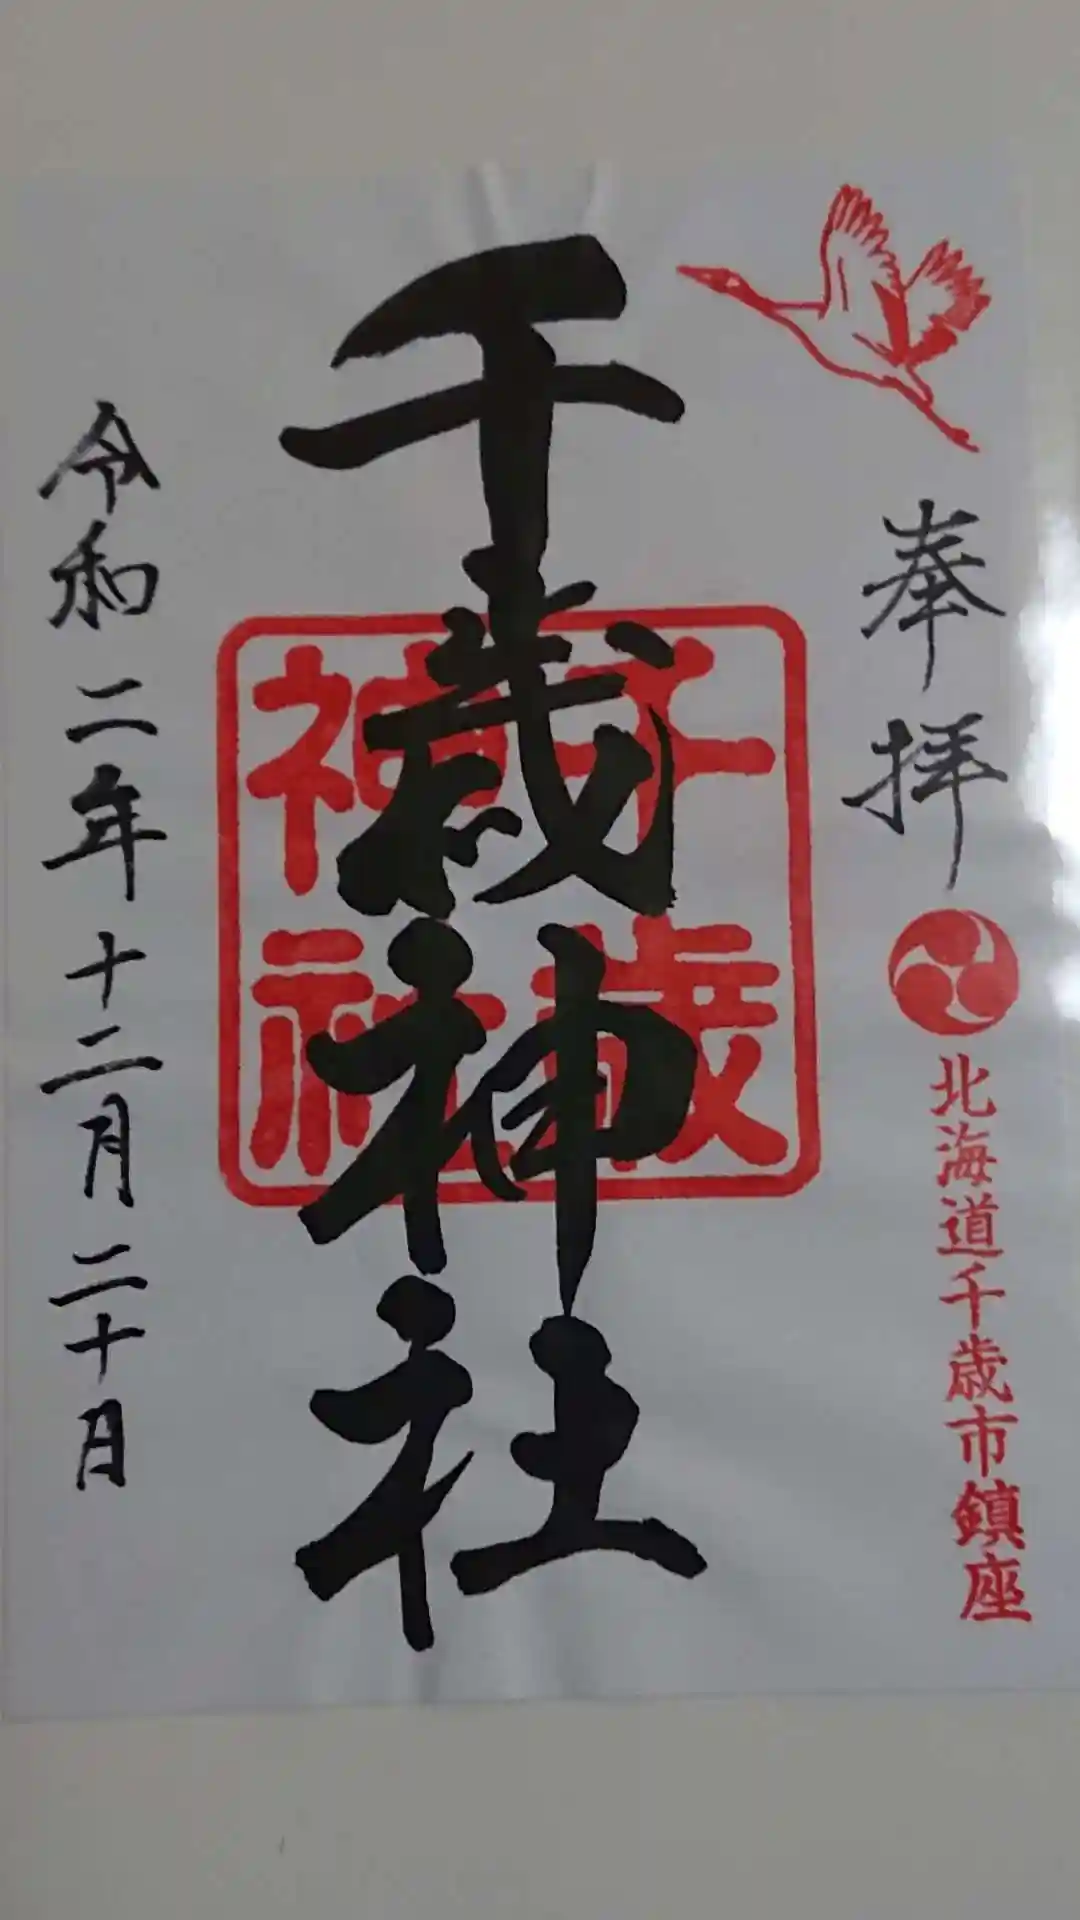 奉拝
北海道千歳市鎮座
千歳神社
千歳
神社
令和二年十二月二十日